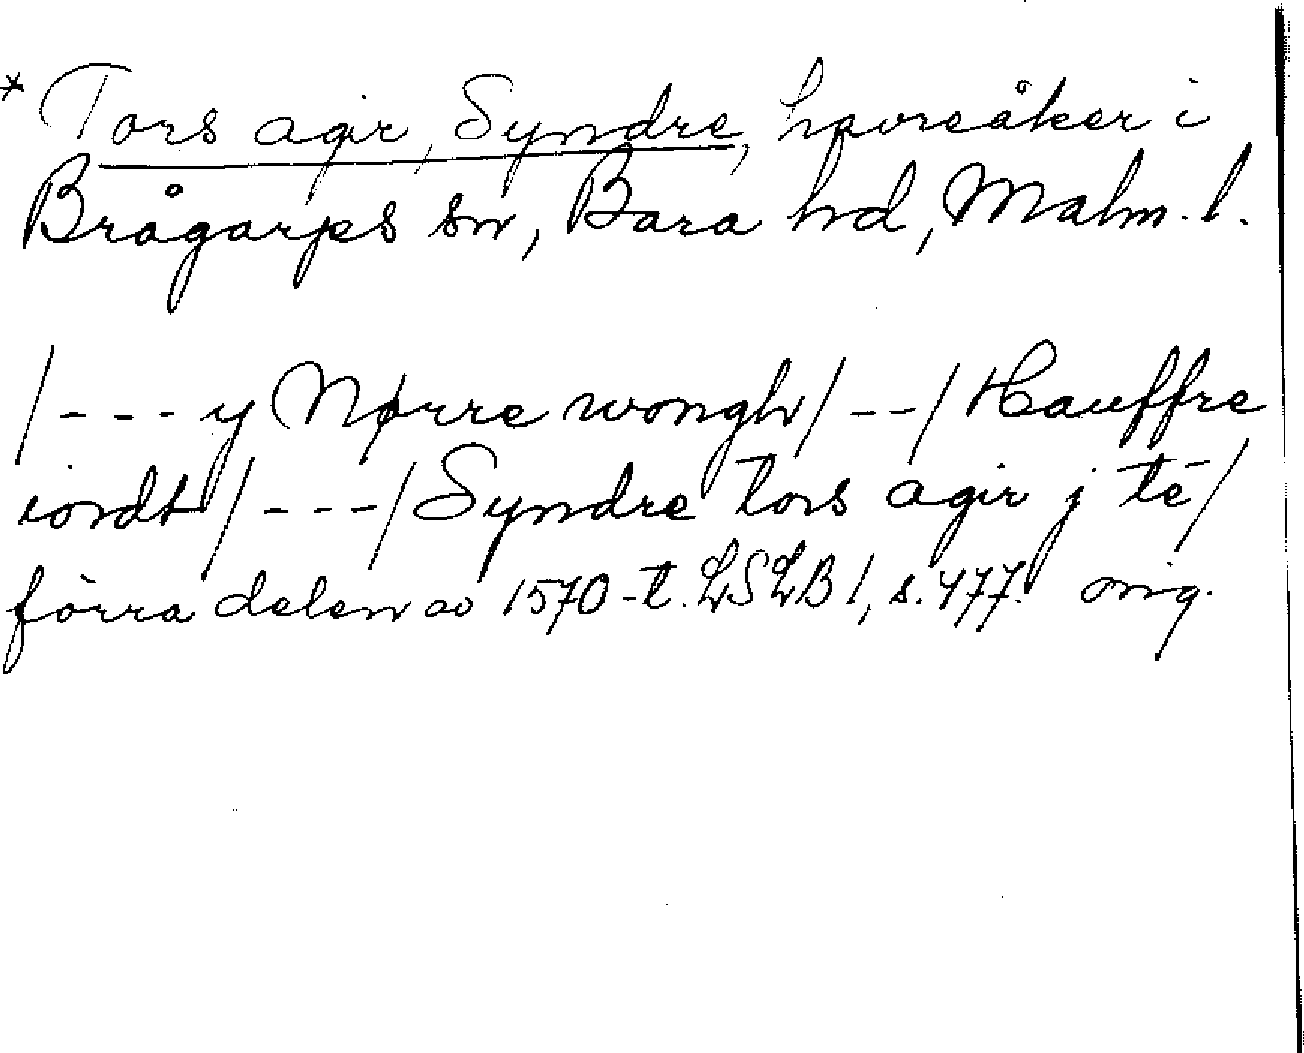 * Tors agir, Syndre, havreåker i
Brågarps sn, Bara hd, Malm. l.
/--- y Nørre wongh/--/ Hauffre
iordt/---/ Syndre tors agir j tē/
förra delen av 1570-t. LSLB 1, s. 477. orig.